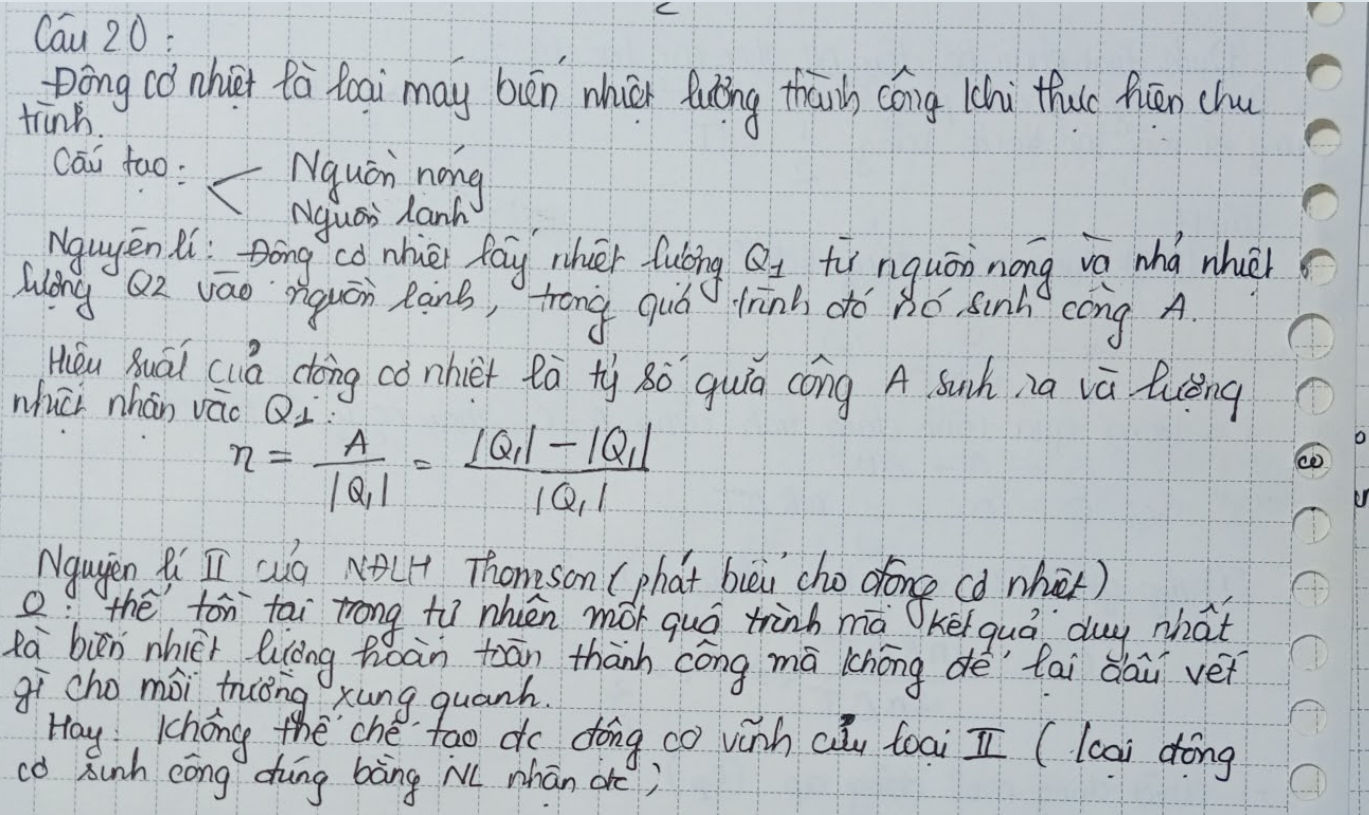 Câu 20:
-Động cơ nhiệt là loại máy biến nhiệt lượng thành công khi thực hiện chu
trình.
Cấu tạo: < Nguồn nóng
Nguồn lạnh
Nguyên lí: Động cơ nhiệt lấy nhiệt lượng Q1 từ nguồn nóng và nhả nhiệt
lượng Q2 vào nguồn lạnh, trong quá trình đó nó sinh công A.
Hiệu suất của động cơ nhiệt là tỷ số giữa công A sinh ra và lượng
nhiệt nhận vào Q1:
η = A / |Q1| = (|Q1| - |Q1|) / |Q1|
Nguyên lí II của NĐLH Thomson (phát biểu cho động cơ nhiệt)
thể tồn tại trong tự nhiên một quá trình mà kết quả duy nhất
là biến nhiệt lượng hoàn toàn thành công mà không để lại dấu vết
gì cho môi trường xung quanh.
Hay: Không thể chế tạo đc động cơ vĩnh cửu loại II (loại động
cơ sinh công đúng bằng NL nhận đc)